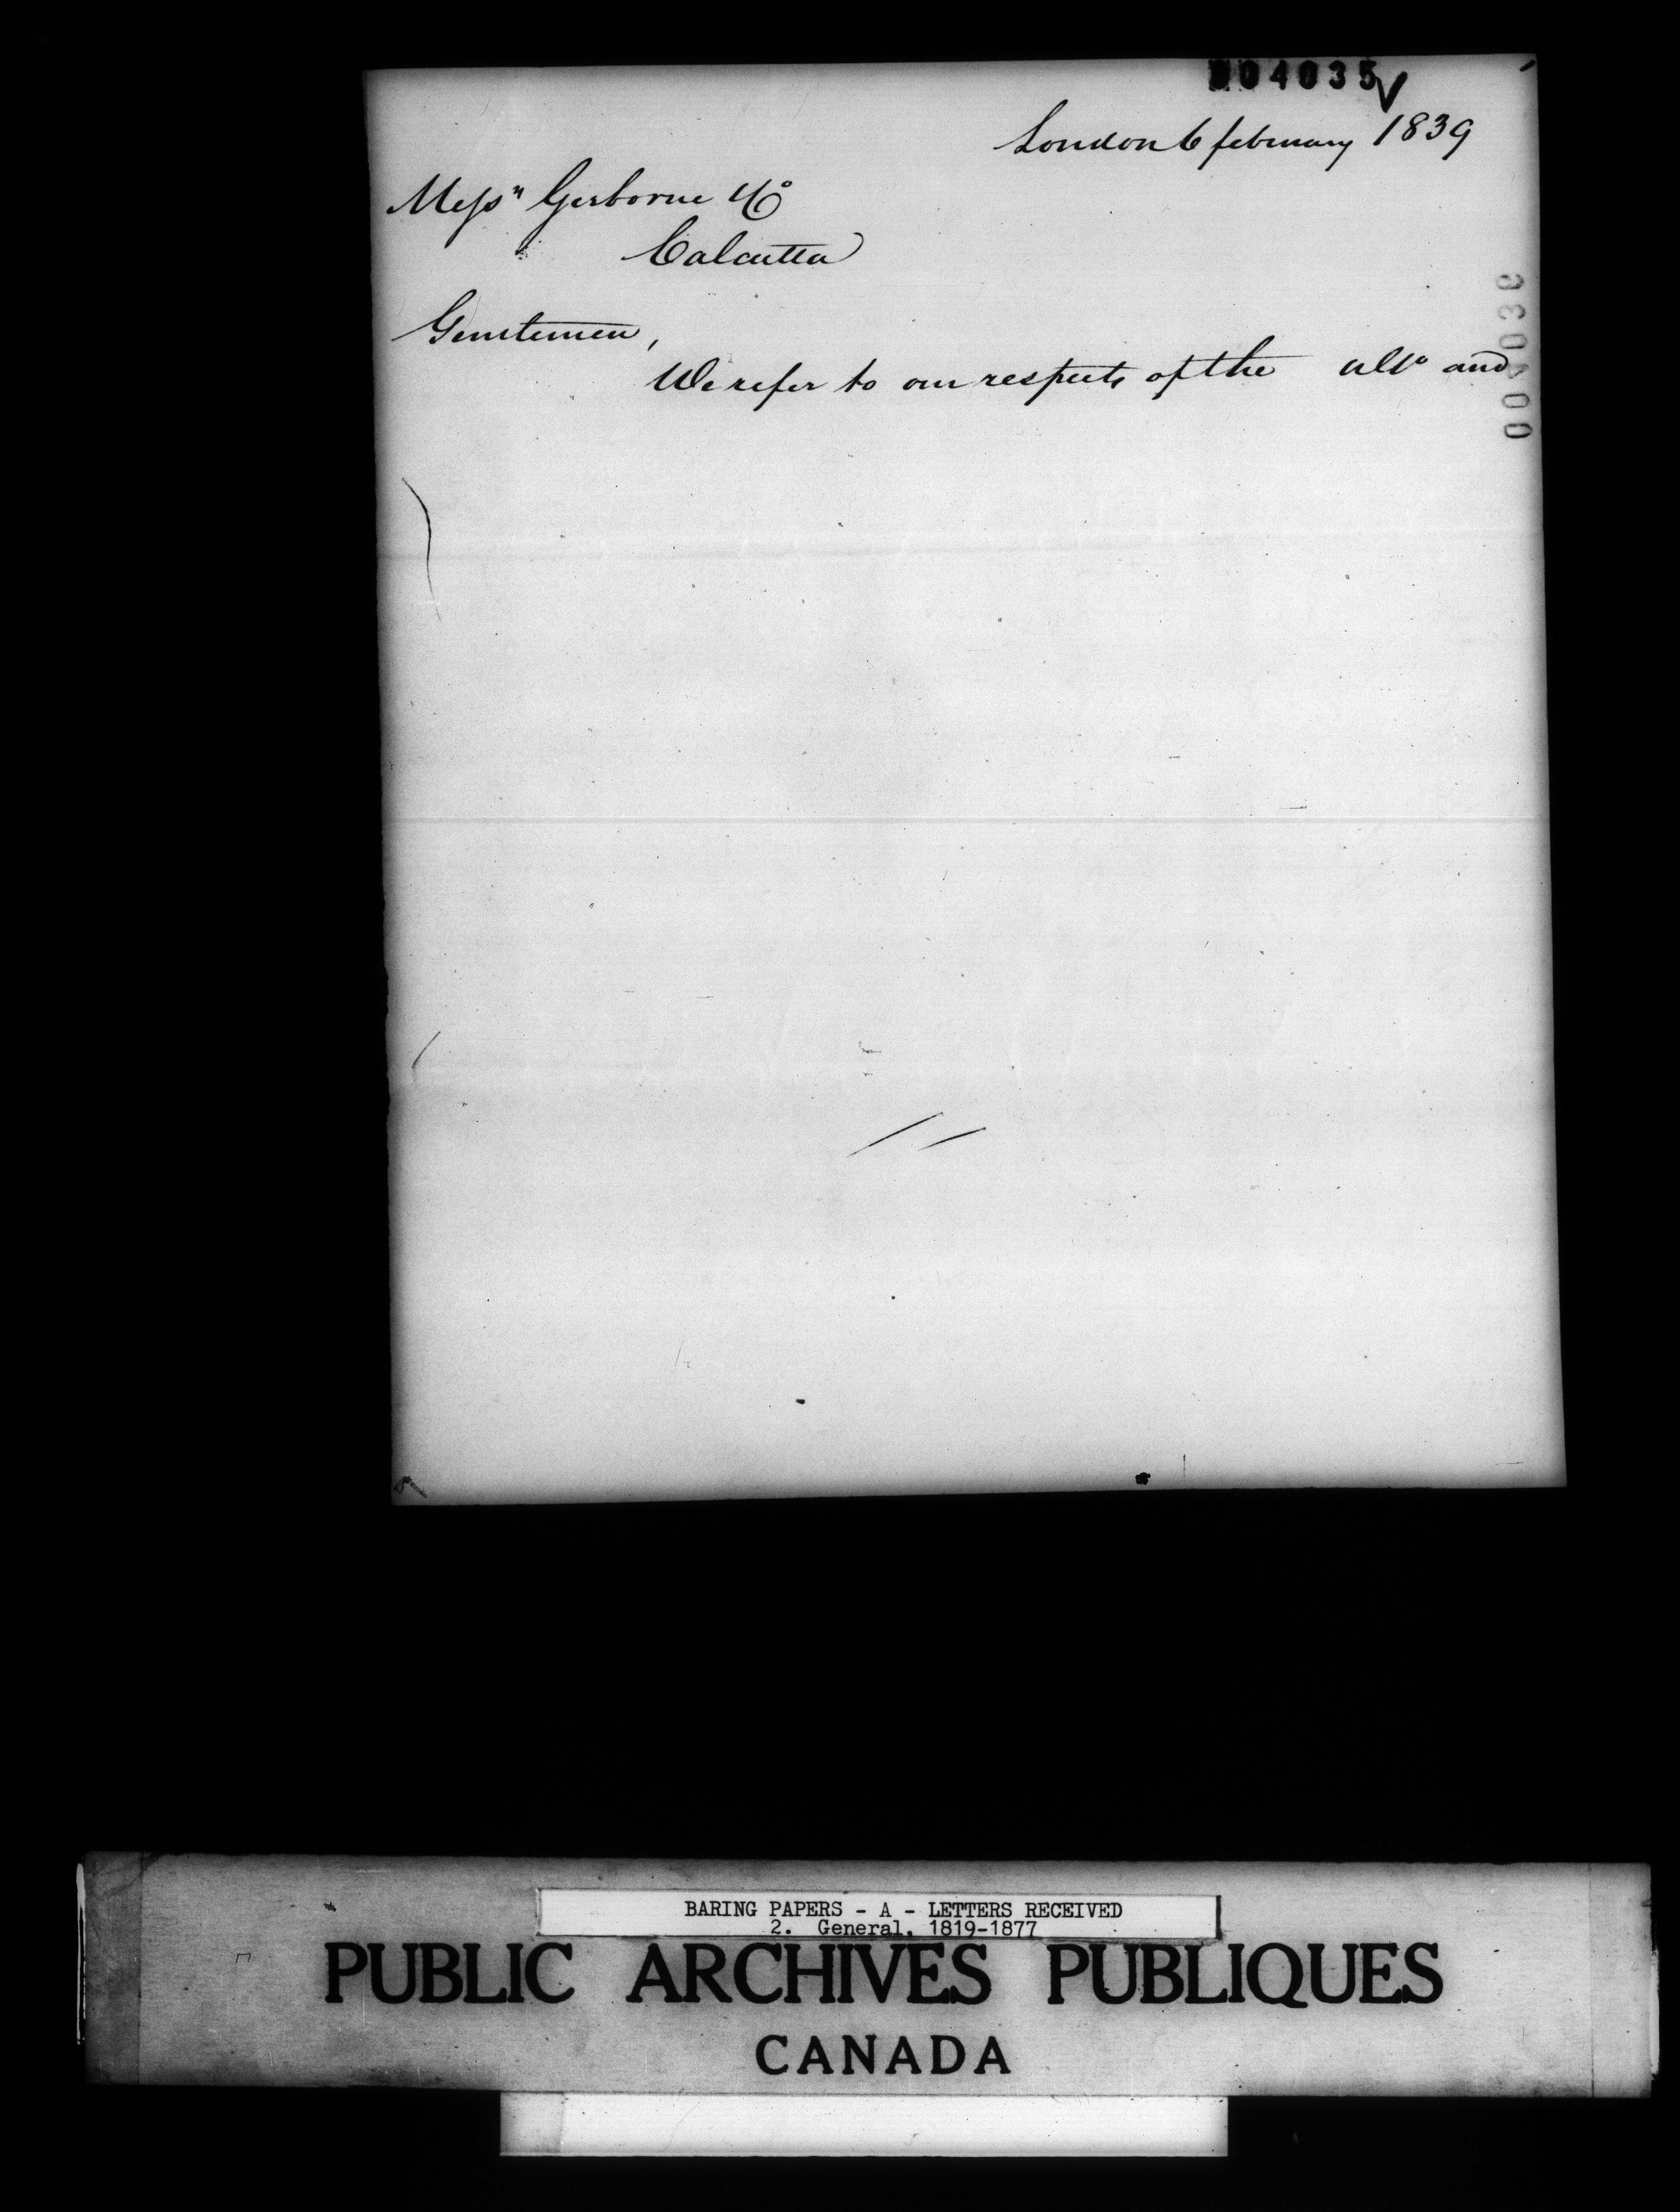 004035
London 6 february 1839
Messrs Gisborne & Co
Calcutta
Gentlemen,
We refer to our respects of the ulto and
004036
BARING PAPERS - A - LETTERS RECEIVED
2. General, 1819-1877
PUBLIC ARCHIVES PUBLIQUES
CANADA